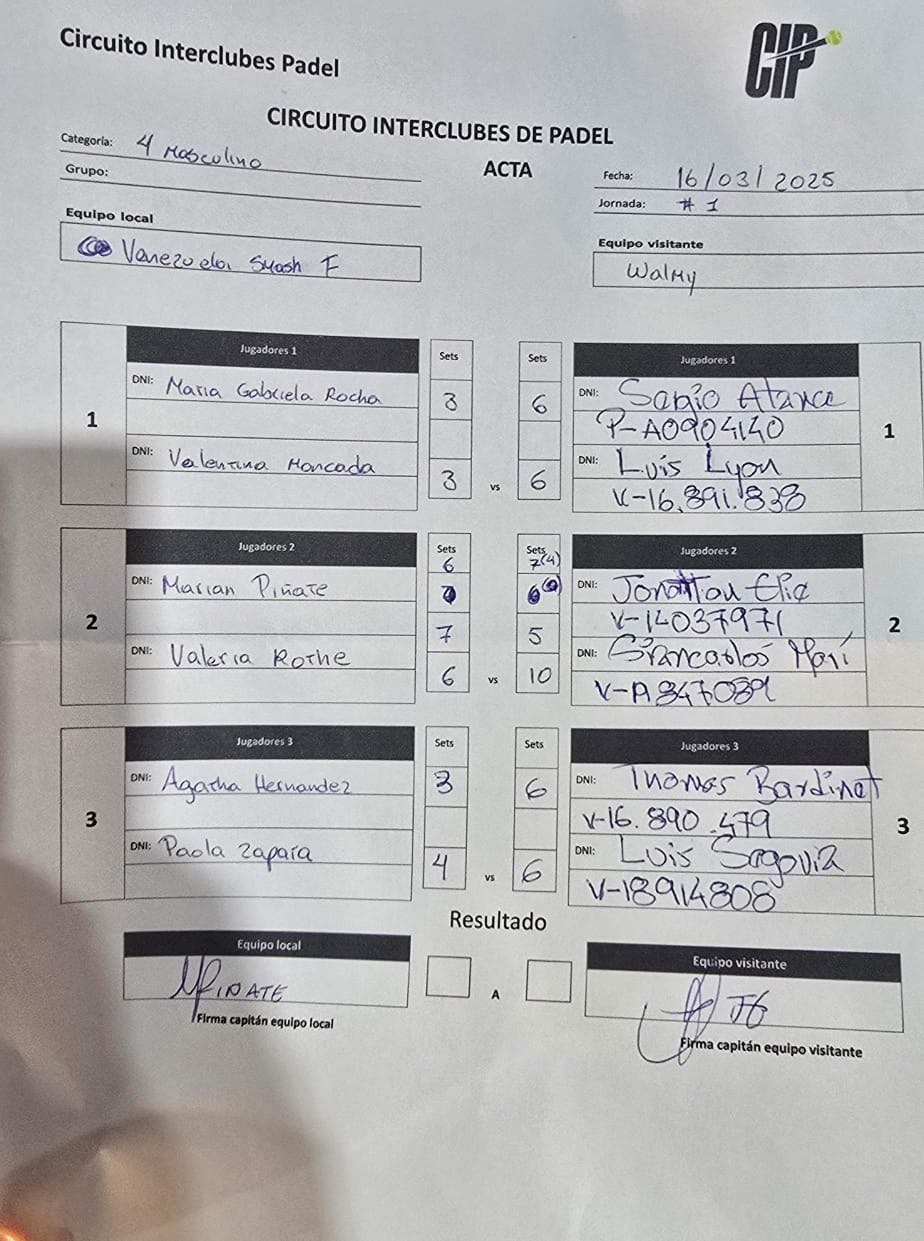 Circuito Interclubes Padel
CIP
CIRCUITO INTERCLUBES DE PADEL
ACTA
Categoría: 4 Masculino
Grupo:
Fecha: 16/03/2025
Jornada: # 1
Equipo local
Venezuela Smash F
Equipo visitante
Walmy
1
Jugadores 1
Sets
Sets
Jugadores 1
1
DNI: Maria Gabriela Rocha
3
6
DNI: Sergio Atance
P-A0904140
DNI: Valentina Moncada
3
vs
6
DNI: Luis Lyon
V-16.891.838
2
Jugadores 2
Sets
Sets
Jugadores 2
2
6
7(4)
DNI: Marian Piñate
DNI:
V-14037971
7
5
DNI: Valeria Rothe
6
vs
10
DNI: Giancarlos
3
Jugadores 3
Sets
Sets
Jugadores 3
3
DNI: Agatha Hernandez
3
6
DNI: Thomas Bardinet
V-16.890.479
DNI: Paola Zapara
4
vs
6
DNI: Luis Segovia
V-18914808
Resultado
Equipo local
A
Equipo visitante
Firma capitán equipo local
Firma capitán equipo visitante